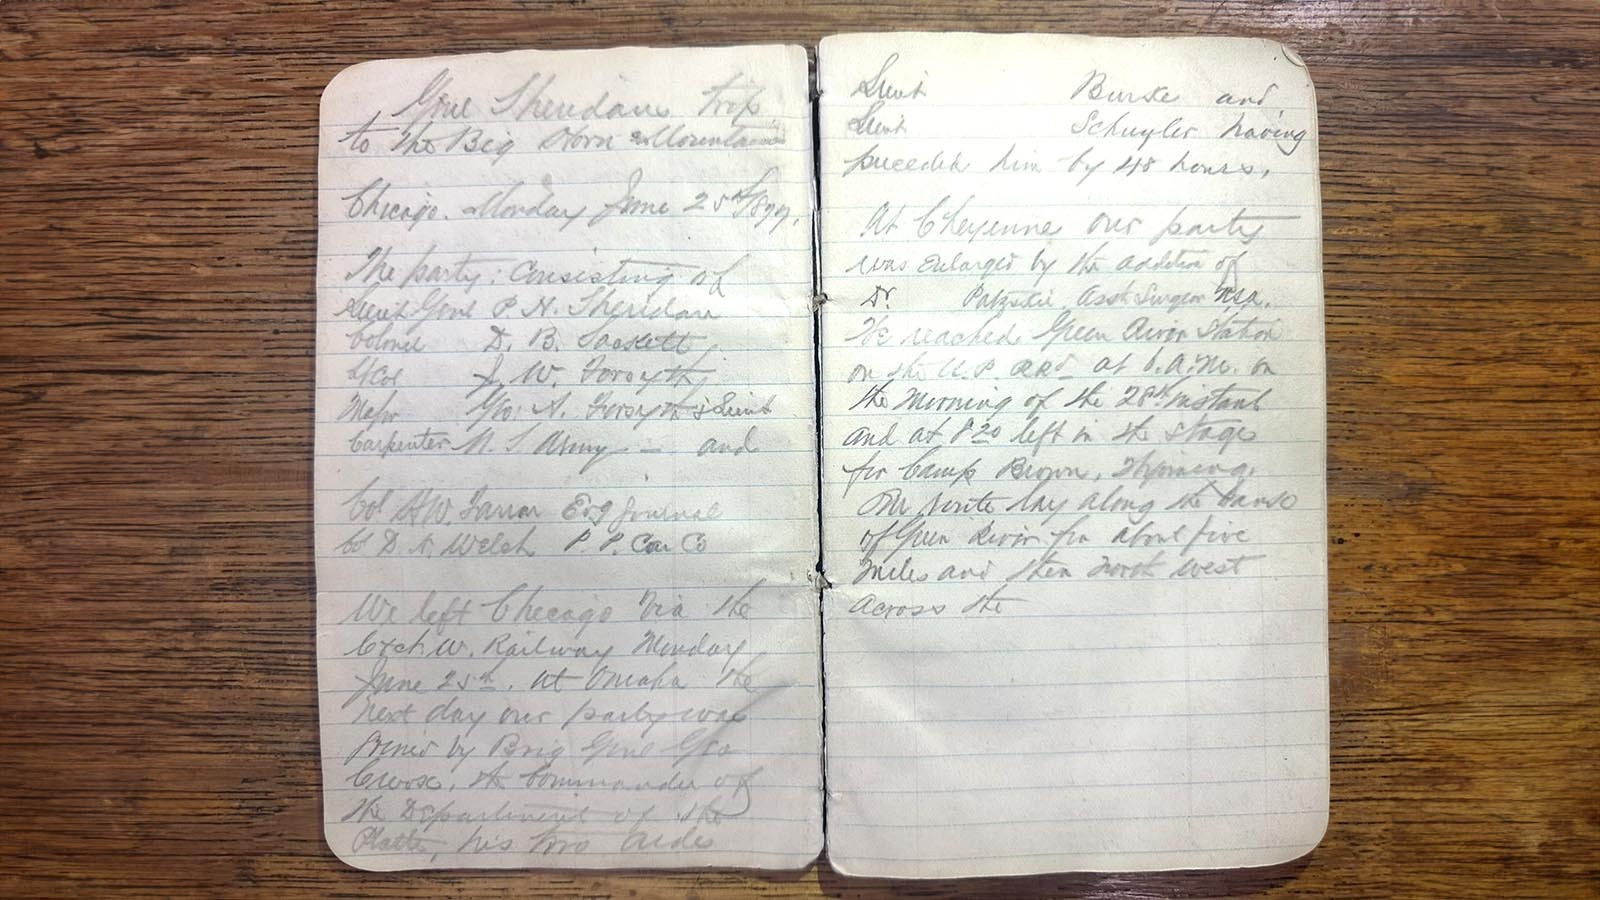 Genl Sheridans trip
to the Big Horn Mountains
Chicago. Monday June 25th 1877.
The party: Consisting of
Lieut Genl P. H. Sheridan
Colonel D. B. Sackett
Lt Col J. W. Forsyth
Major Geo. A. Forsyth & Lieut
Carpenter U. S. Army — and
Col H. W. Farrar Evg Journal
Col D. N. Welch P. P. Car Co
We left Chicago Via the
C & N. W. Railway Monday
June 25th. at Omaha the
next day our party was
joined by Brig Genl Geo
Crook, the Commander of
the Department of the
Platte, his two aides
Lieut Burke and
Lieut Schuyler having
preceded him by 48 hours.
At Cheyenne our party
was enlarged by the addition of
Dr. Asst Surgeon USA.
We reached Green River Station
on the U. P. RRd at 6. A. M. on
the Morning of the 28th instant
and at 8 20 left in the stage
for Camp Brown, Wyoming.
Our route lay along the bank
of Green River for about five
miles and then North West
across the